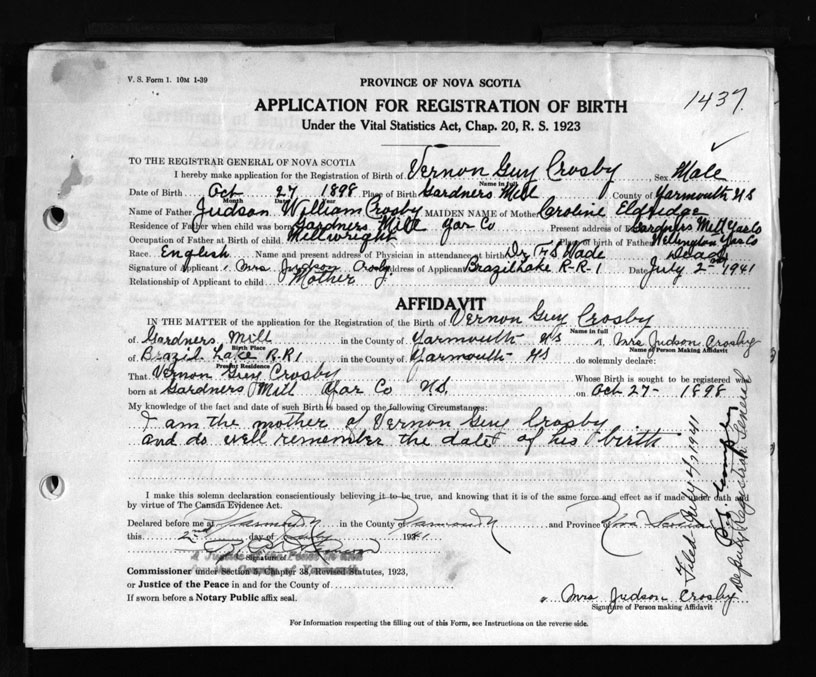 V. S. Form 1. 10M 1-39
PROVINCE OF NOVA SCOTIA
1437.
APPLICATION FOR REGISTRATION OF BIRTH
Under the Vital Statistics Act, Chap. 20, R. S. 1923
TO THE REGISTRAR GENERAL OF NOVA SCOTIA
I hereby make application for the Registration of Birth of Vernon Guy Crosby, Sex Male
Name in full
Date of Birth Oct 27 1898 Place of Birth Gardners Mill County of Yarmouth NS
Month Date Year
Name of Father Judson William Crosby MAIDEN NAME of Mother Caroline Eldridge
Residence of Father when child was born Gardners Mill Yar Co Present address of Gardners Mill Yar Co
Occupation of Father at Birth of child Millwright Place of birth of Father Wellington Yar Co
Race English Name and present address of Physician in attendance at birth Dr Wade Dead
Signature of Applicant Mrs Judson Crosby Address of Applicant Brazil Lake R-R-1 Date July 2nd 1941
Relationship of Applicant to child Mother
AFFIDAVIT
IN THE MATTER of the application for the Registration of the Birth of Vernon Guy Crosby
Name in full
of Gardners Mill in the County of Yarmouth NS I, Mrs Judson Crosby
Birth Place Name of Person Making Affidavit
of Brazil Lake R.R1 in the County of Yarmouth NS do solemnly declare:
Present Residence
That Vernon Guy Crosby Whose Birth is sought to be registered was
born at Gardners Mill Yar Co N.S. on Oct 27- 1898
My knowledge of the fact and date of such Birth is based on the following Circumstances:
I am the mother of Vernon Guy Crosby
and do well remember the date of his birth
I make this solemn declaration conscientiously believing it to be true, and knowing that it is of the same force and effect as if made under oath and
by virtue of The Canada Evidence Act.
Declared before me at Yarmouth in the County of Yarmouth and Province of Nova Scotia
this 2nd day of July 1941
Signature of
Commissioner under Section 5, Chapter 38, Revised Statutes, 1923,
or Justice of the Peace in and for the County of
If sworn before a Notary Public affix seal.
Mrs Judson Crosby
Signature of Person making Affidavit
For Information respecting the filling out of this Form, see Instructions on the reverse side.
Filed July 4/1941
Deputy Registrar General